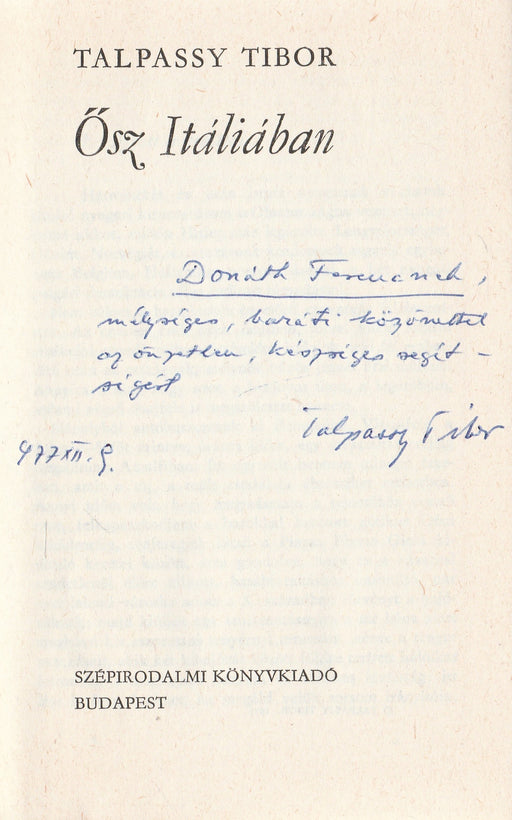 TALPASSY TIBOR
Ősz Itáliában
Donáth Ferencnek,
mélységes, baráti köszönettel
az önzetlen, készséges segít-
ségért
Talpassy Tibor
977 XII. 9.
SZÉPIRODALMI KÖNYVKIADÓ
BUDAPEST